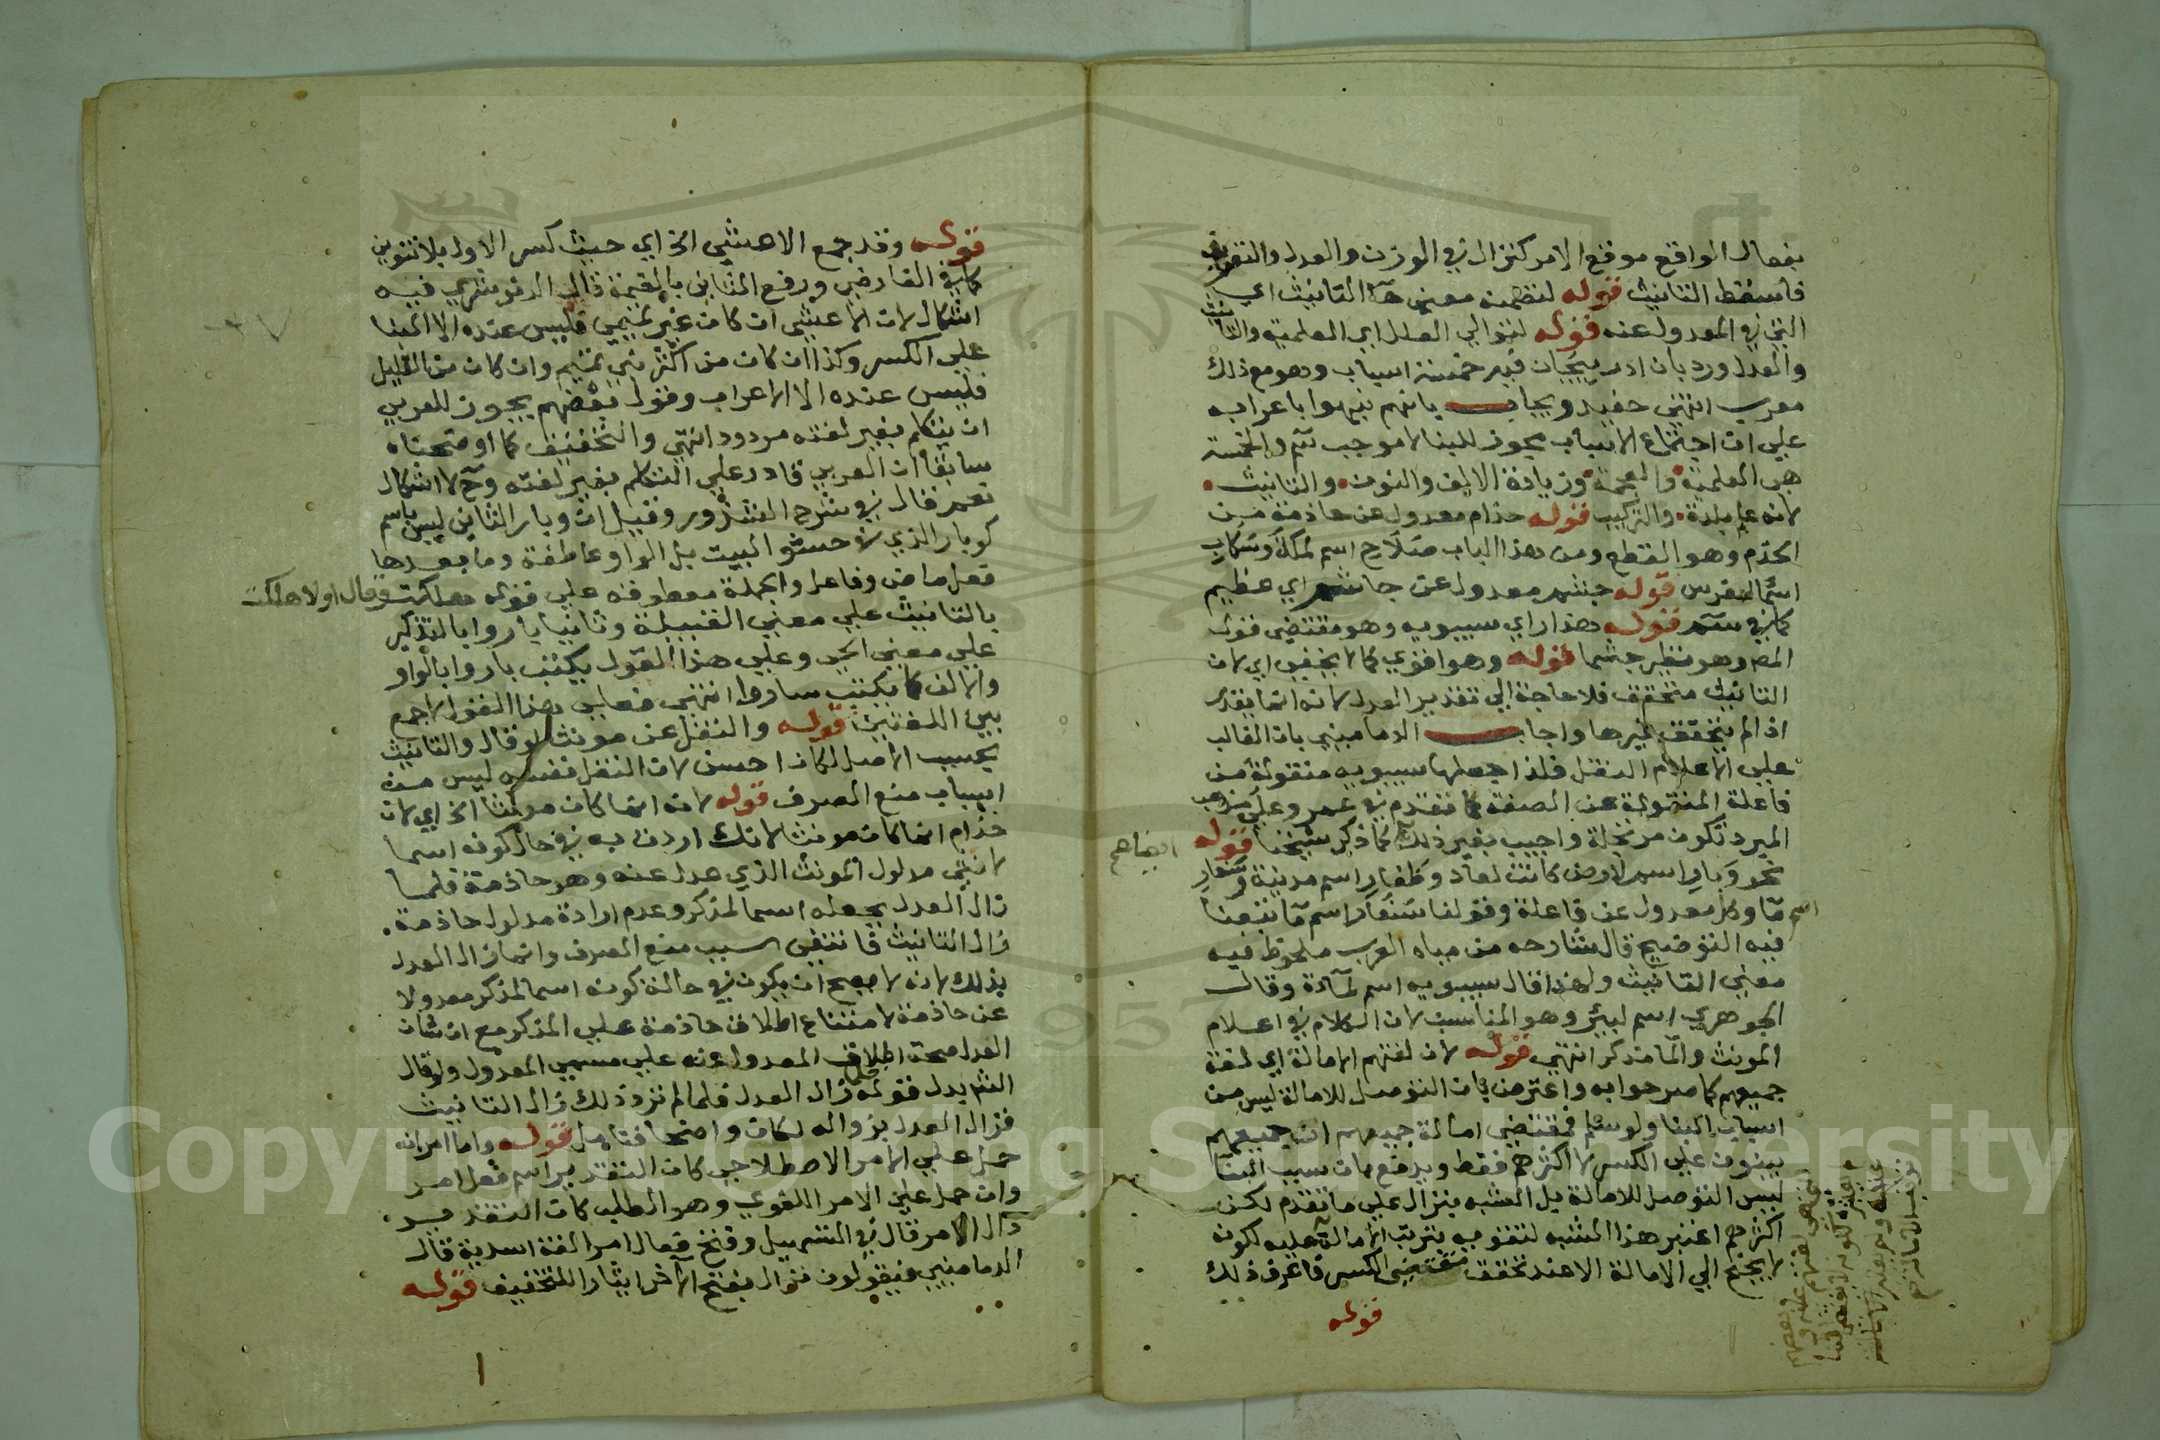 بفعال الواقع موقع الامر كنزال في الوزن والعدل والتعريف
فاسقط التانيث قوله لتضمنه معنى هاء التانيث اي
التي في المعدول عنه قوله لتوالي العلل اي العلمية والتانيث
والعدل ورد بان اذربيجان فيه خمسة اسباب وهو مع ذلك
معرب انتهى حفيد ويجاب بانهم نبهوا باعرابه
على ان اجتماع الاسباب مجوز للبنا لا موجب سم والخمسة
هي العلمية والعجمة وزيادة الالف والنون والتانيث
لانه علم بلدة والتركيب قوله حذام معدول عن حاذمة من
الحذم وهو القطع ومن هذا الباب صلاح اسم لمكة وسكاب
اسما لفرس قوله جشم معدول عن جاشم اي عظيم
كما في سم قوله هذا راي سيبويه وهو مقتضى قول
المص وهو نظير جشما قوله وهو اقوي كما لا يخفى اي لان
التانيث متحقق فلا حاجة الي تقدير العدل لانه انما يقدر
اذا لم يتحقق غيرها واجاب الدماميني بان الغالب
على الاعلام النقل فلذا جعلها سيبويه منقولة من
فاعلة المنقولة عن الصفة كما تقدم في عمر وعلى مذهب
المبرد تكون مرتجلة واجيب بغير ذلك كما ذكر شيخنا قوله
نحو وبار اسم لارض كانت لعاد وظفار اسم مدينة وسفار
اسم ماء وكل معدول عن فاعلة وقولنا سفار اسم ماء تبعنا
فيه التوضيح قال شارحه من مياه العرب ملحوظ فيه
معنى التانيث ولهذا قال سيبويه اسم لماءة وقال
الجوهري اسم لبئر وهو المناسب لان الكلام في اعلام
المونث والماء مذكر انتهى قوله لان لغتهم الامالة اي لغة
جميعهم كما صرحوا به واعترض بان التوصل للامالة ليس من
اسباب البنا ولو سلم فمقتضى امالة جميعهم ان جميعهم
يبنون على الكسر لا اكثرهم فقط ويدفع بان سبب البنا
ليس التوصل للامالة بل الشبه بنزال على ما تقدم لكن
اكثرهم اعتبر هذا الشبه لتقويه بترتب الامالة عليه لكونه
لا يجنح الي الامالة الا عند تحقق مقتضى الكسر فاعرف ذلك
قوله
قوله وقد جمع الاعشي الخ اي حيث كسر الاول بلا تنوين
كما في الفارضي ورفع الثاني بالضمة قال الدنوشري فيه
اشكال لان الاعشي ان كان غير تميمي فليس عنده الا البنا
على الكسر وكذا ان كان من اكثر بني تميم وان كان من القليل
فليس عنده الا الاعراب وقول بعضهم يجوز للعربي
ان يتكلم بغير لغته مردود انتهي والتحقيق كما اوضحناه
سابقا ان العربي قادر على التكلم بغير لغته وح لا اشكال
نعم قال في شرح الشذور وقيل ان وبار الثاني ليس باسم
كوبار الذي في حشو البيت بل الواو عاطفة وما بعدها
فعل ماض وفاعل والجملة معطوفة على قوله هلكت وقال اولا هلكت
بالتانيث على معنى القبيلة وثانيا باروا بالتذكير
على معنى الحي وعلى هذا القول يكتب باروا بالواو
والالف كما يكتب ساروا انتهى فعلى هذا القول لا جمع
بين اللغتين قوله والنقل عن مونث لو قال والتانيث
بحسب الاصل لكان احسن لان النقل نفسه ليس من
اسباب منع الصرف قوله لانه انما كان مونثا الخ اي لان
حذام انما كان مونثا لانك اردت به في حال كونه اسما
لانثي مدلول المونث الذي عدل عنه وهو حاذمة فلما
زال العدل بجعله اسما لمذكر وعدم ارادة مدلول حاذمة
زال التانيث فانتفى سبب منع الصرف وانما زال العدل
بذلك لانه لا يصح ان يكون في حالة كونه اسما لمذكر معدولا
عن حاذمة لامتناع اطلاق حاذمة على المذكر مع ان شان
العدل صحة اطلاق المعدول عنه على مسمى المعدول ولو قال
الش بدل قوله زال العدل فلما لم ترد ذلك زال التانيث
فزال العدل بزواله لكان واضحا فتامل قوله واما امر انه
حمل على الامر الاصطلاحي كان التقدير اسم فعل امر
وان حمل على الامر اللغوي وهو الطلب كان التقدير
دال الامر قال في التسهيل وفتح فعال امرا لغة اسدية قال
الدماميني فيقولون نزال بفتح الاخر ايثارا للتخفيف قوله